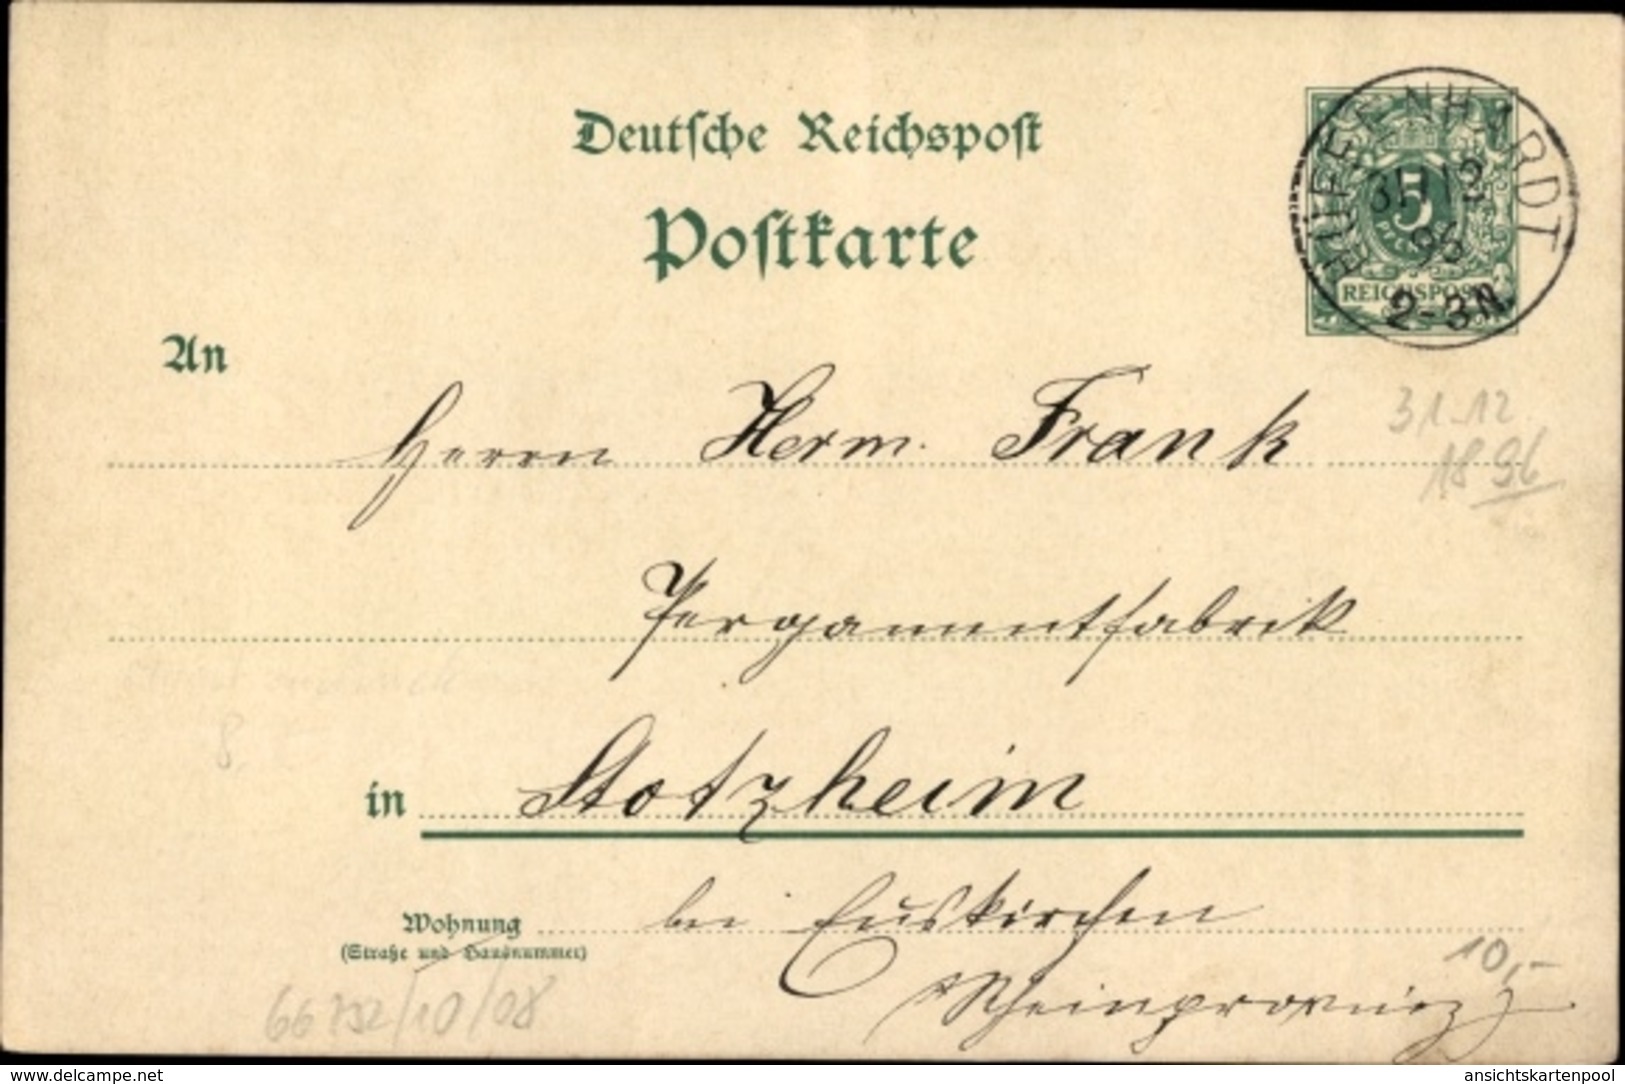 Deutsche Reichspost
Postkarte
HÜFFENHARDT
31/12
96
2-3N.
5
REICHSPOST
An
Herrn Herm. Frank
31.12
1896
Pergamentfabrik
8.
in Stotzheim
Wohnung bei Euskirchen
(Straße und Hausnummer)
10,-
(Rheinprovinz)
66792/10/08
www.delcampe.net
ansichtskartenpool